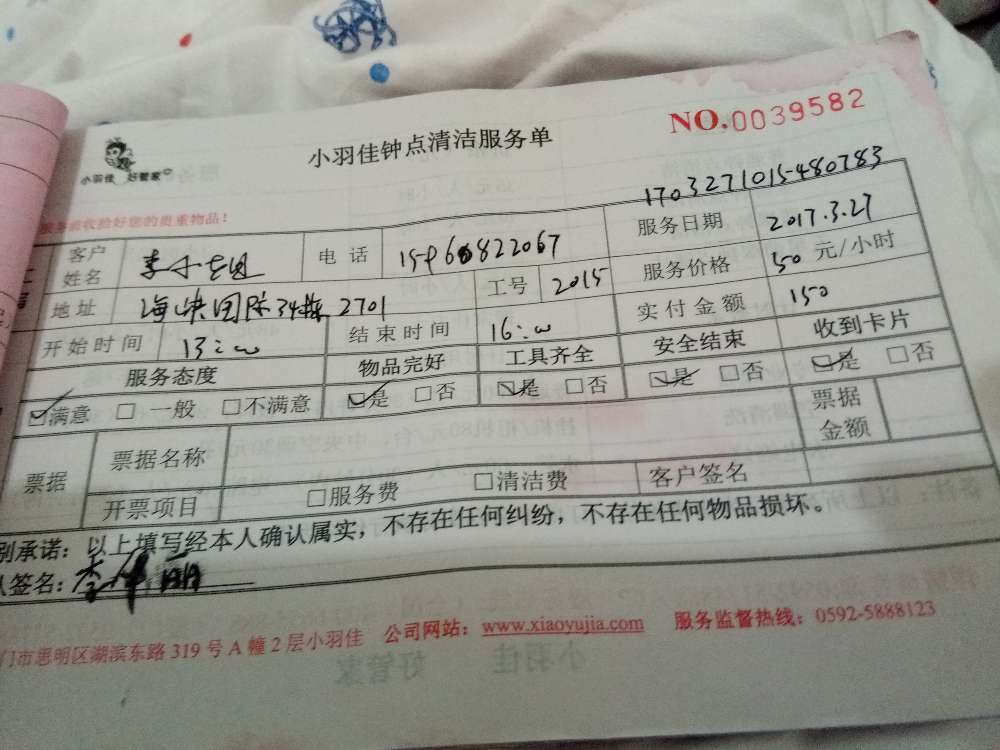 NO.0039582
小羽佳钟点清洁服务单
小羽佳 好管家
服务前收捡好您的贵重物品!
1703271015480783
客户姓名 李小姐 电话 服务日期 2017.3.27
地址 34栋 2701 工号 2015 服务价格 50 元/小时
开始时间 13:00 结束时间 16:00 实付金额 150
服务态度 物品完好 工具齐全 安全结束 收到卡片
☑满意 □一般 □不满意 ☑是 □否 ☑是 □否 ☑是 □否 ☑是 □否
票据 票据名称 票据金额
开票项目 □服务费 □清洁费 客户签名
别承诺:以上填写经本人确认属实,不存在任何纠纷,不存在任何物品损坏。
人签名:
门市思明区湖滨东路319号A幢2层小羽佳 公司网站:www.xiaoyujia.com 服务监督热线:0592-5888123